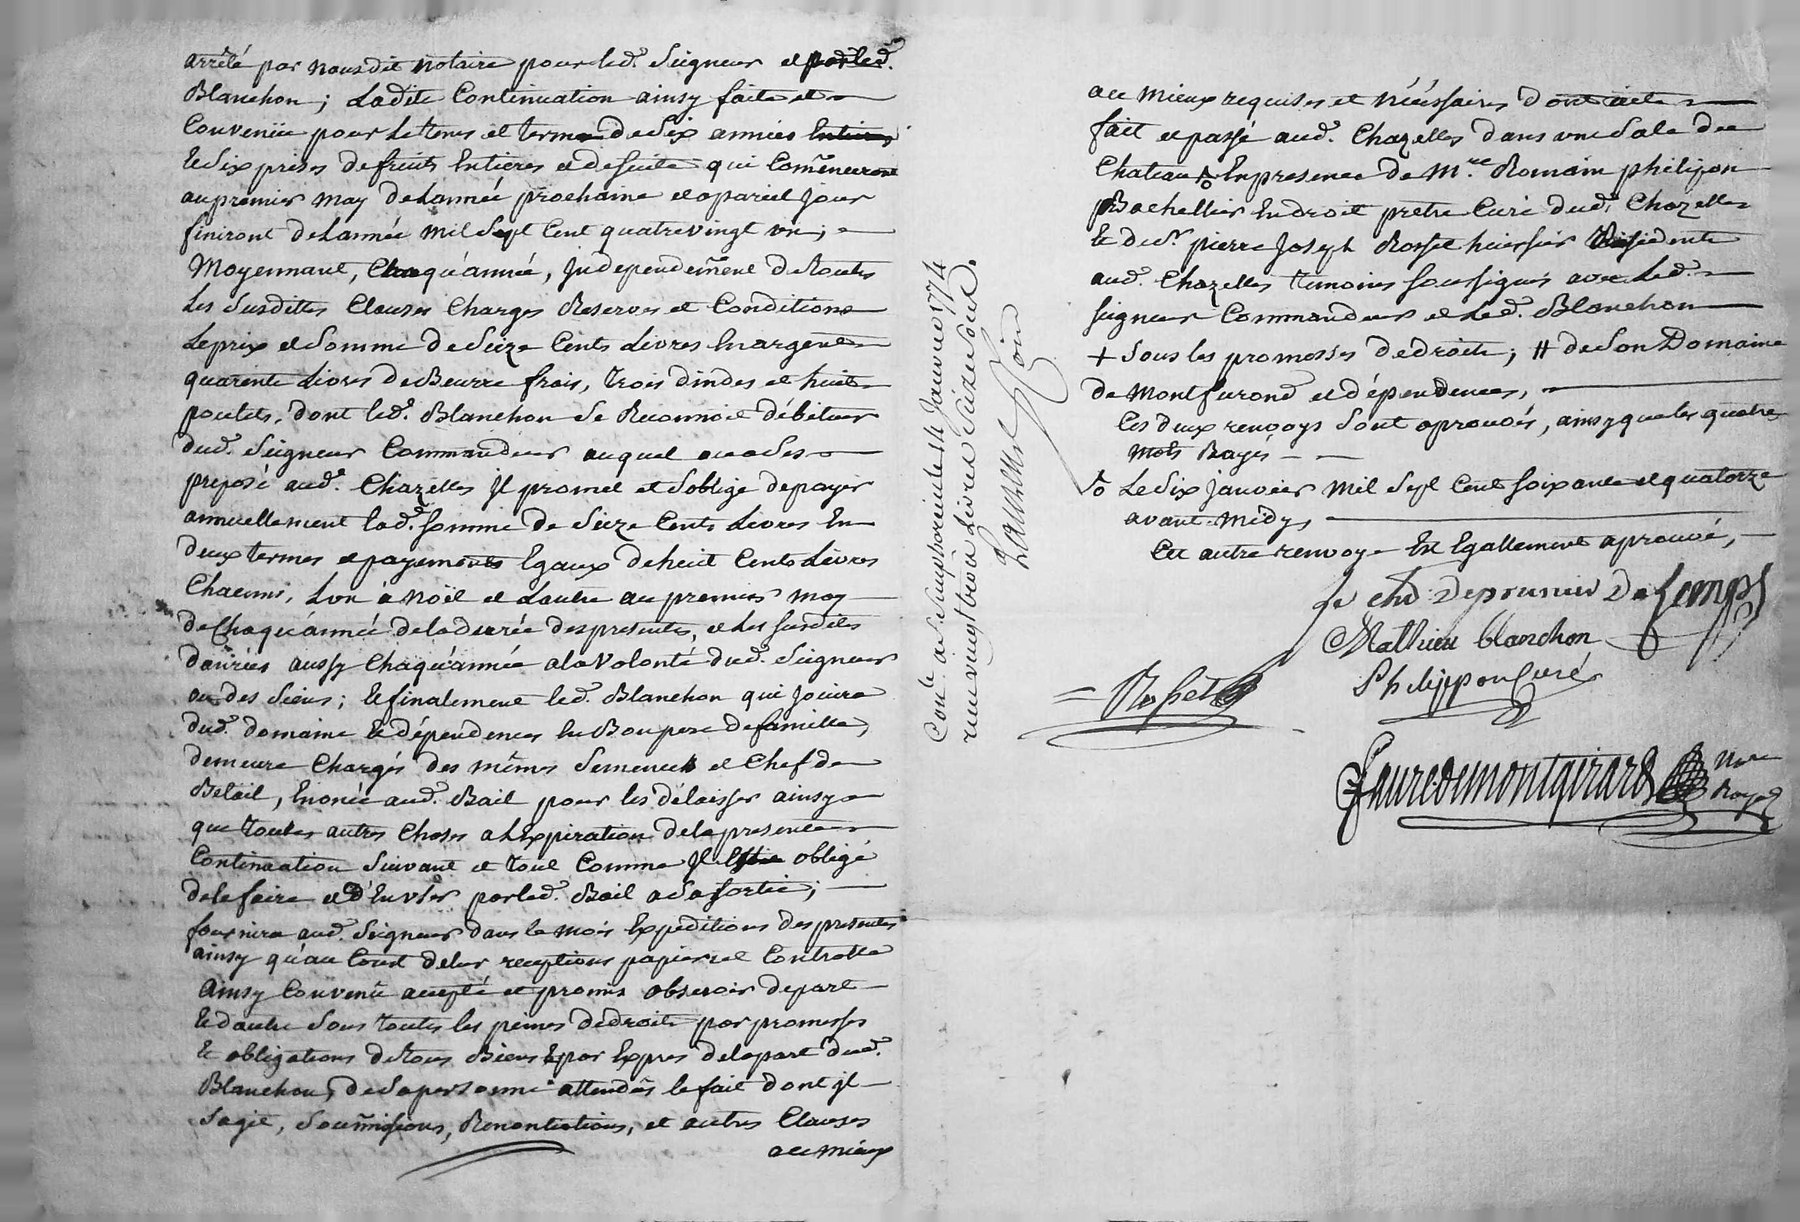 arrêté par nousdit notaire pour led. Seigneur et par led.
Blanchon; Ladite Continuation ainsy faite et
Convenüe pour Le tems et terme de Six années Entieres
Et Six prises de fruits Entieres et de suite qui Comenceront
au premier may de Lanneé prochaine et a pareil Jour
finiront de Lanneé mil Sept Cent quatrevingt un;
Moyennant, Chaqu'anneé, Independement de toutes
Les Susdittes Clauses Charges Reserves et Conditions
Le prix et Somme de Seize Cents Livres En argent
quarente Livres de Beurre frais, trois dindes et huit
poulets, dont led. Blanchon Se Reconnoit débiteur
dud. Seigneur Commandeur auquel ou a Ses
preposé aud. Chazelles Il promet et S'oblige de payer
annuellement lad. Somme de Seize Cents Livres En
deux termes et payements Egaux de huit Cents Livres
Chacuns, L'un à Noël et Lautre au premier may
de Chaqu'anneé de la dureé des presentes, et Les Susdits
danrées aussy Chaqu'anneé a la Volonté dud. Seigneur
ou des Siens; Et finalement led. Blanchon qui Jouira
dud. domaine Et dépendences En Bon pere de famille,
demeure Chargé des mêmes Semences et Chef de
Betail, Enoncé aud. Bail pour les délaisser ainsy
que toutes autres Choses a L'Expiration de la presente
Continuation Suivant et tout Comme Il Est obligé
de le faire et d'En User par led. Bail a Sa Sortie;
fournira aud. Seigneur dans le mois Expeditions des presentes
ainsy qu'au Cout de leur receptions papier et Controlle
Ainsy Convenu accepté et promis observer de part
Et d'autre Sous toutes les peines de droit par promesses
Et obligations de tous Biens Et par Expres de la part dud.
Blanchon, de Sa personne attendû le fait dont il
Sagit, Soumissions, Renontiations, et autres Clauses
au mieux
Con.le a St Simphorien le 14 Janvier 1774
reçu vingt trois Livres Seize Sous.
au mieux requises et nécéssaires dont acte
fait et passé aud. Chazelles dans une Sale du
Chateau En presence de M.re Romain philipon
Bachellier En droit pretre Curé dud. Chazelles
Et de Sr. pierre Joseph Rosset huissier Residente
aud. Chazelles temoins Soussignés avec Led.
Seigneur Commandeur et Led. Blanchon
+ Sous les promesses de droit; # de Son Domaine
de Montfurond et dépendences,
Ces deux renvoys Sont aprouvés, ainsy que les quatre
mots Rayés
Le Six Janvier Mil Sept Cent Soixante et quatorze
avant Midy,
Cet autre renvoye Est Egallement aprouvé,
le chr Deprunier De Lemps
Mathieu blanchon
Philippon Curé
Rosset
Fauredemontgirard Nre
Royal